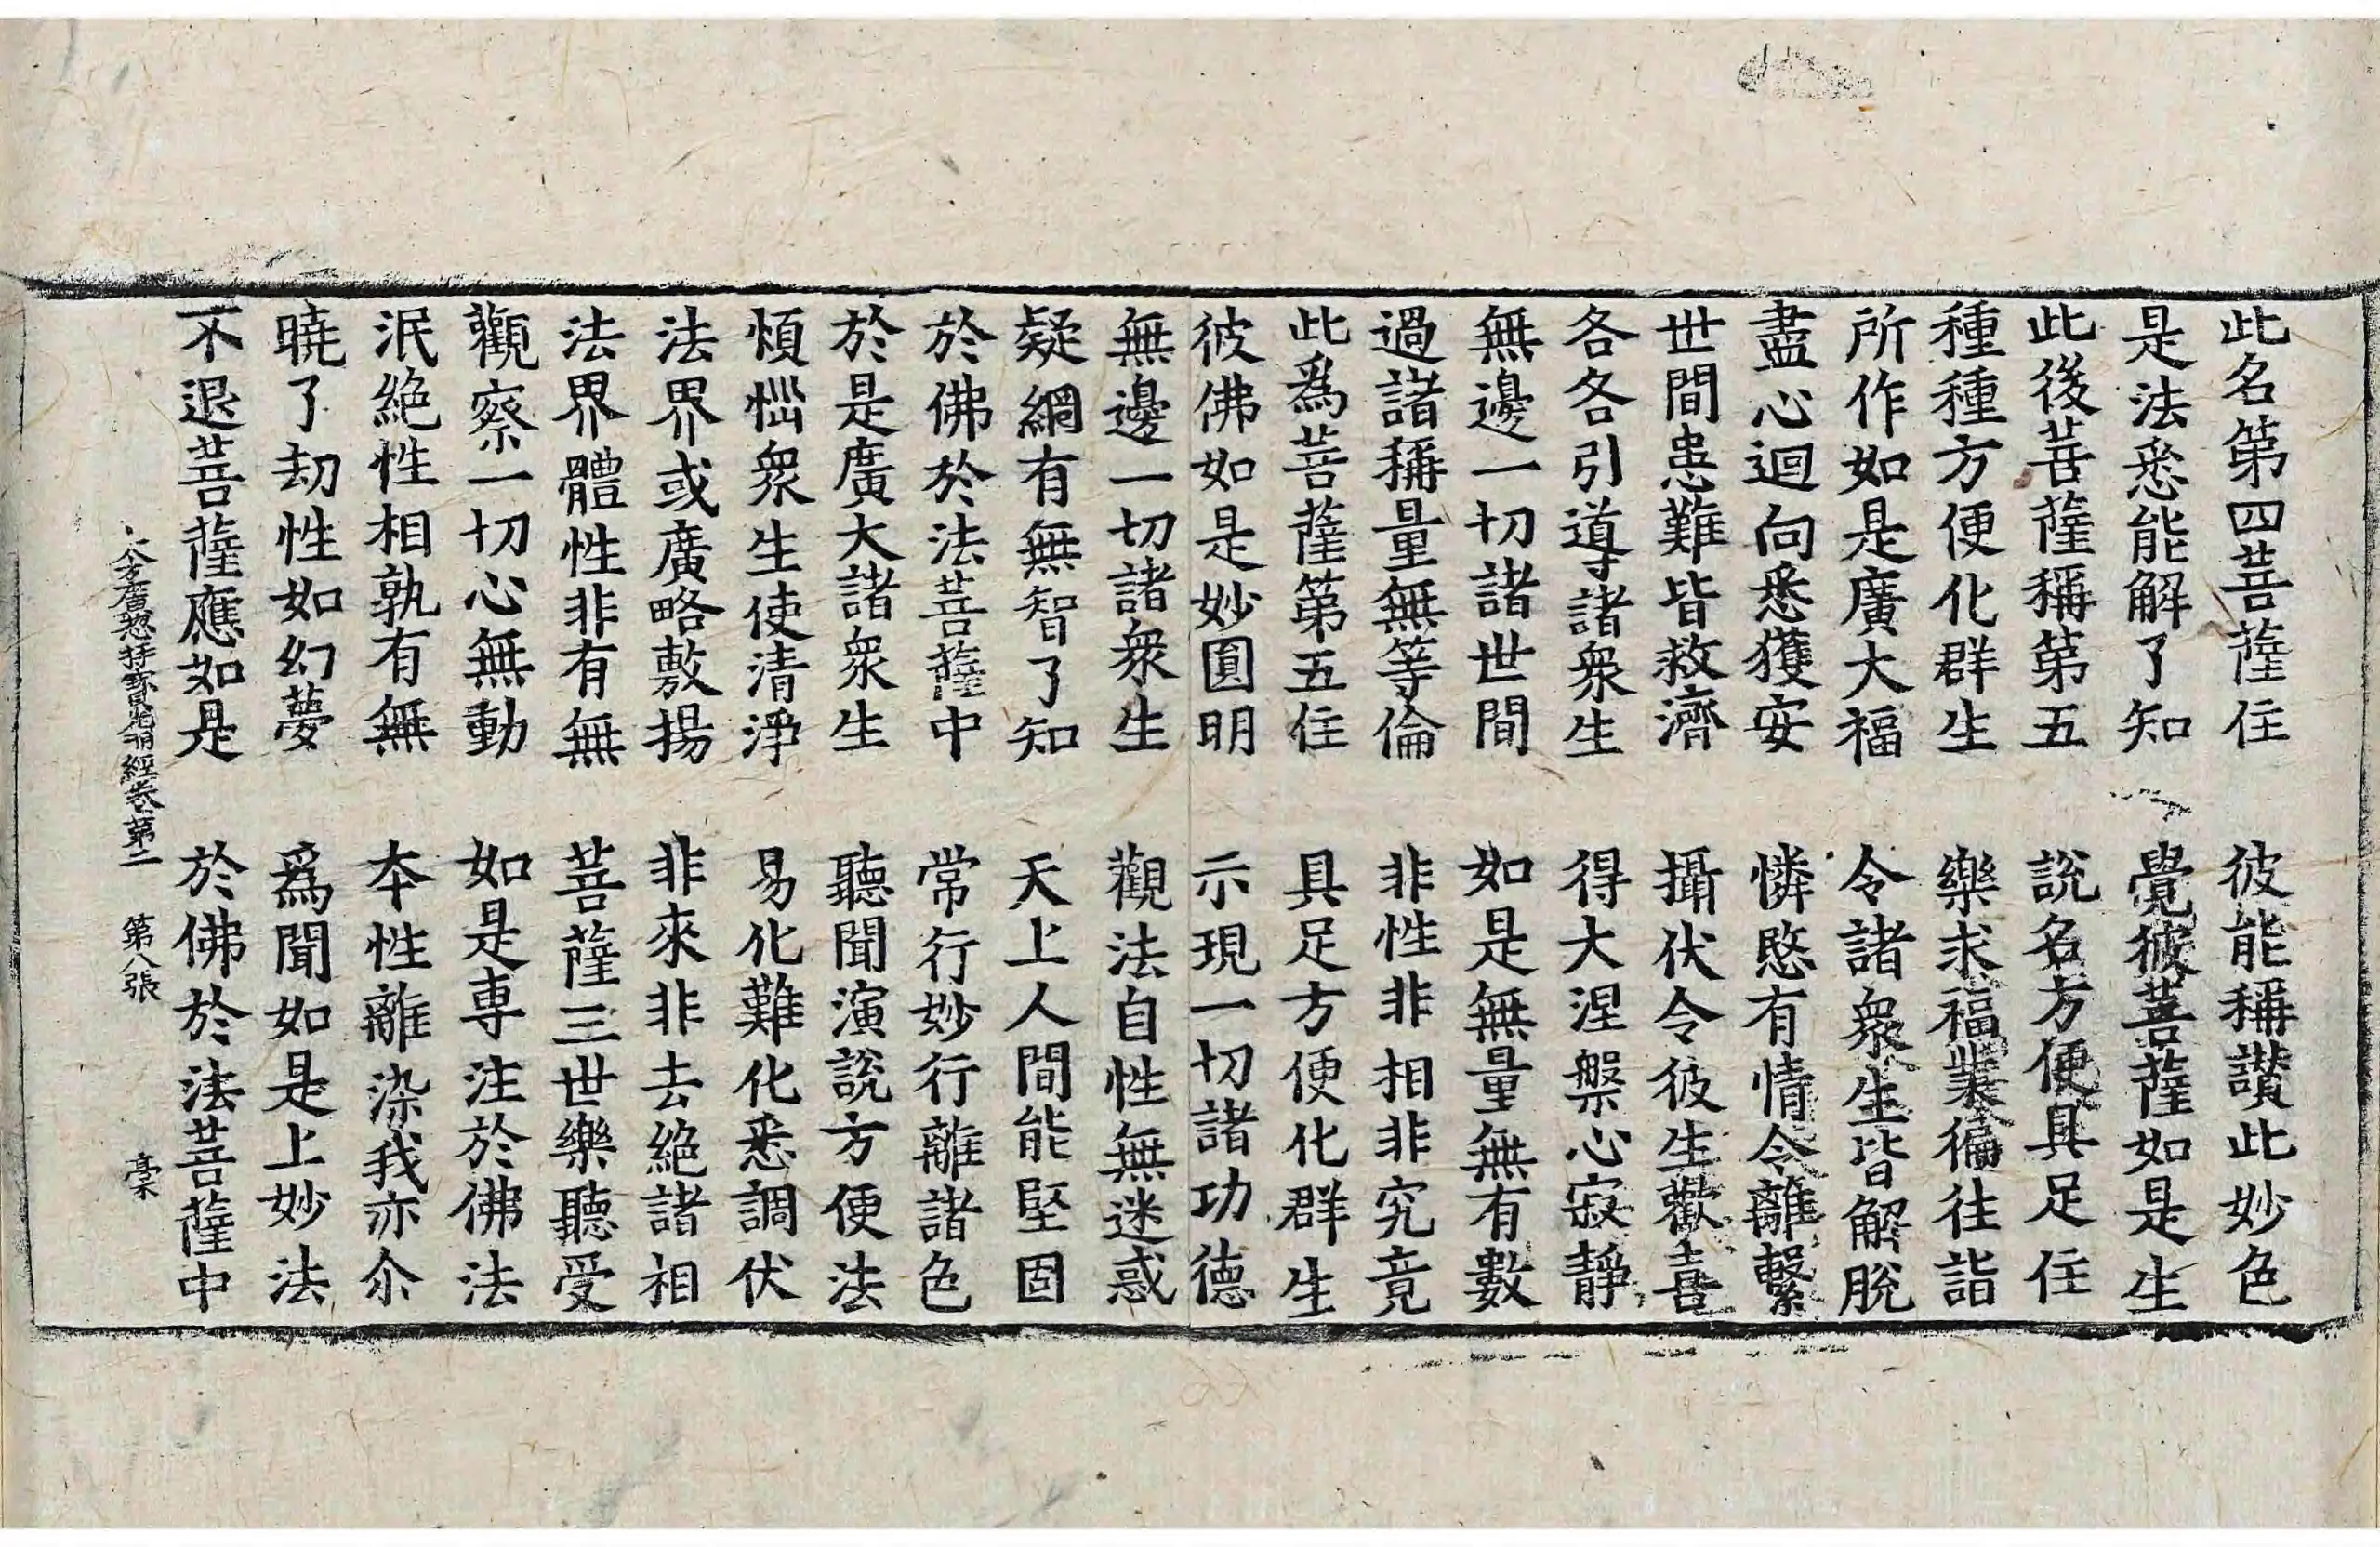 此名第四菩薩住　彼能稱讃此妙色
是法悉能解了知　覺彼菩薩如是生
此後菩薩稱第五　説名方便具足住
種種方便化群生　樂求福業徧往詣
所作如是廣大福　令諸衆生皆解脫
盡心迴向悉獲安　憐愍有情令離繫
世間患難皆救濟　攝伏令彼生歡喜
各各引導諸衆生　得大涅槃心寂靜
無邊一切諸世間　如是無量無有數
過諸稱量無等倫　非性非相非究竟
此爲菩薩第五住　具足方便化群生
彼佛如是妙圓明　示現一切諸功德
無邊一切諸衆生　觀法自性無迷惑
疑網有無智了知　天上人間能堅固
於佛於法菩薩中　常行妙行離諸色
於是廣大諸衆生　聽聞演説方便法
煩惱衆生使清淨　易化難化悉調伏
法界或廣略敷揚　非來非去絶諸相
法界體性非有無　菩薩三世樂聽受
觀察一切心無動　如是專注於佛法
泯絶性相孰有無　本性離染我亦尒
曉了劫性如幻夢　爲聞如是上妙法
不退菩薩應如是　於佛於法菩薩中
大方廣惣持寶光明經卷第二　第八張　槖